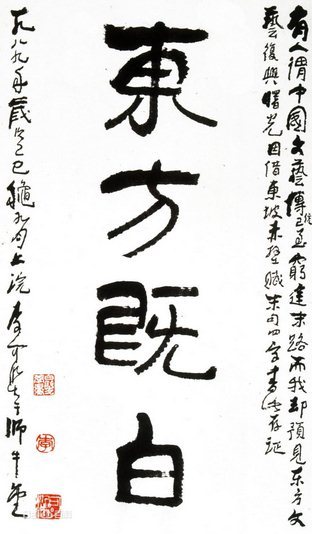 有人謂中國文藝傳统已至窮途末路而我却預見东方文
藝復興曙光因借東坡赤壁賦末句四字書此存証
東方既白
一九八九年歲次己巳龝九月上浣李可染于師牛堂